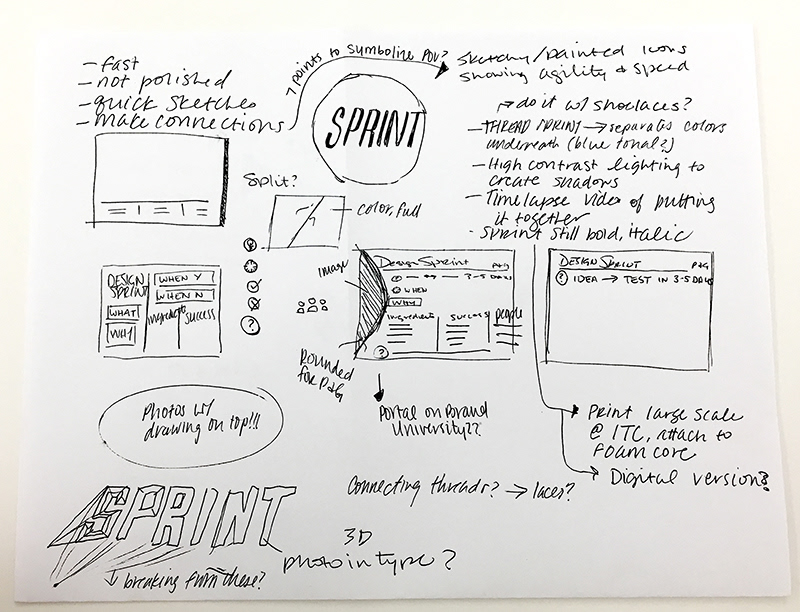 - fast
- not polished
- quick sketches
- make connections
7 points to symbolize POV?
sketchy/painted icons
showing agility & speed
SPRINT
do it w/ shoelaces?
- THREAD SPRINT → separates colors
underneath (blue tonal?)
- High contrast lighting to
create shadows
- Timelapse video of putting
it together
- Sprint still bold, italic
Split?
color, full
image
DESIGN
SPRINT
WHEN Y
WHEN N
WHAT
WHY
ingredients
success
?
Design Sprint
P&G
3-5 DAYS
WHEN
WHY
ingredients
success
people
?
Rounded
for P&G
Portal on Brand
University??
DESIGN SPRINT
P&G
? IDEA → TEST IN 3-5 DAYS
Photos w/
drawing on top!!!
Print large scale
@ ITC, attach to
foam core
Digital version?
Connecting threads? → laces?
SPRINT
↓ breaking from these?
3D
photo in type?